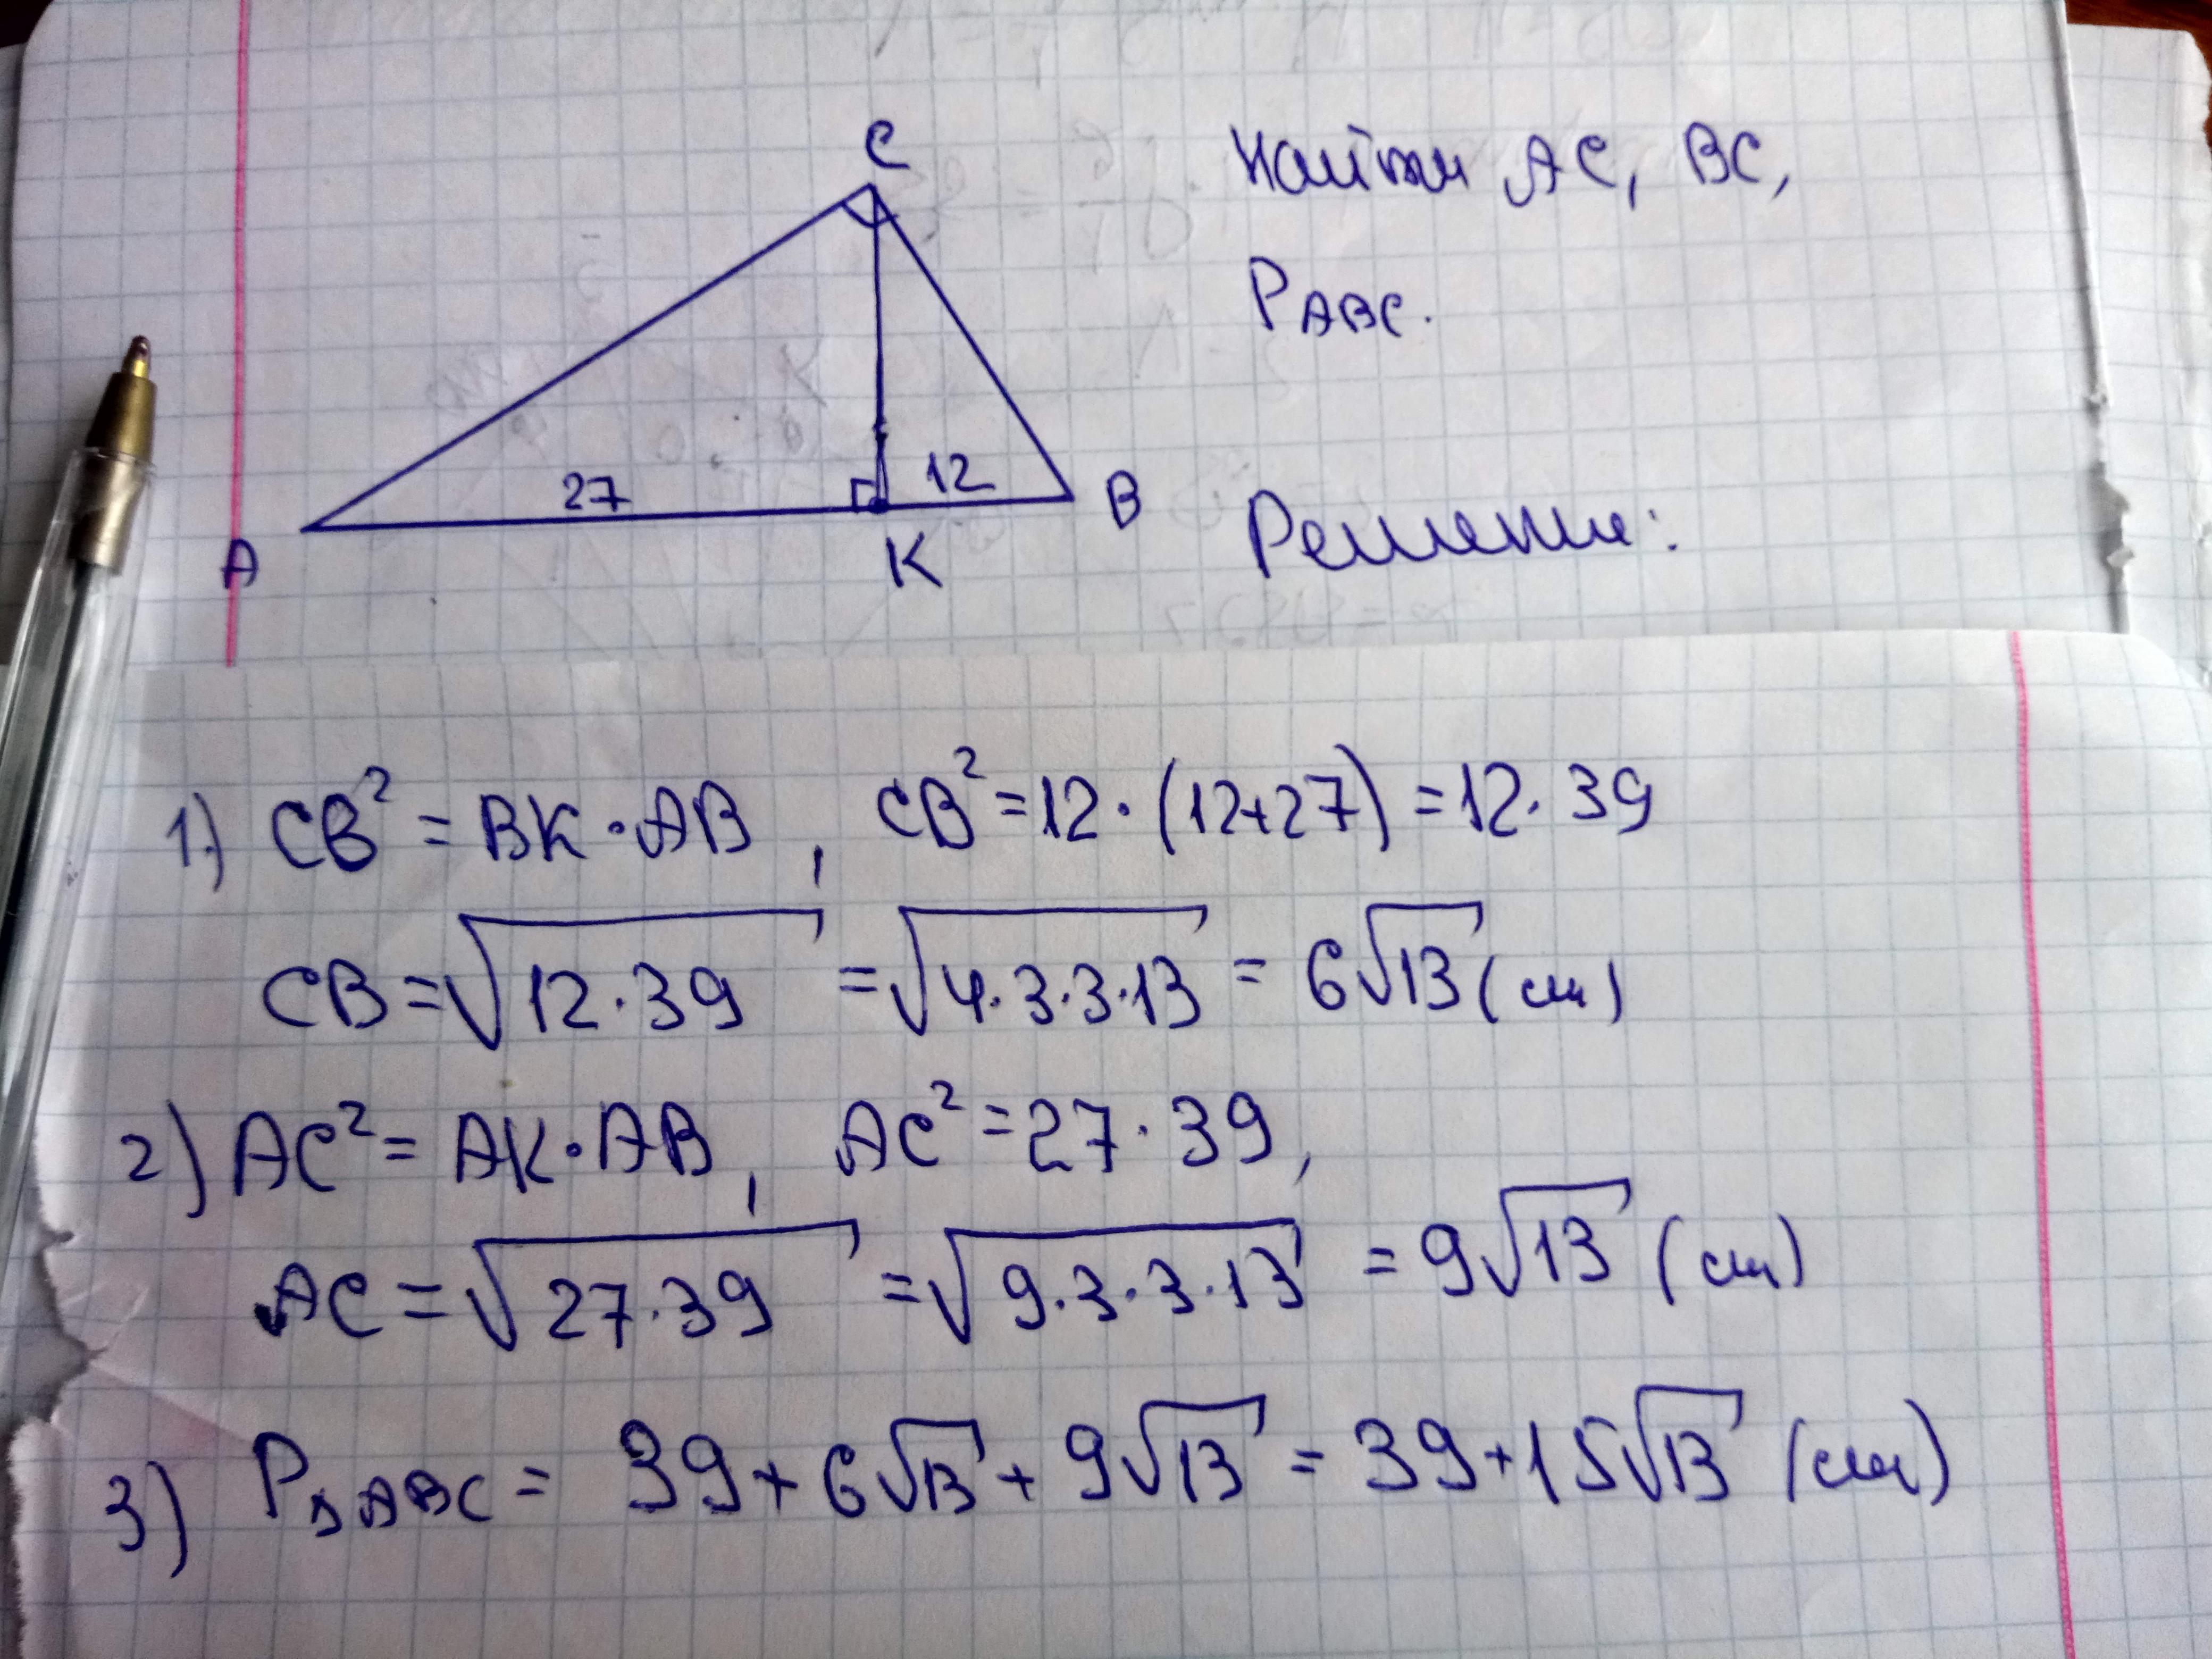 C
Найти AC, BC,
P ABC.
27
12
A
K
B
Решение:
1) CB² = BK · AB, CB² = 12 · (12+27) = 12 · 39
CB = √12 · 39 = √4 · 3 · 3 · 13 = 6√13 (см)
2) AC² = AK · AB, AC² = 27 · 39,
AC = √27 · 39 = √9 · 3 · 3 · 13 = 9√13 (см)
3) P△ABC = 39 + 6√13 + 9√13 = 39 + 15√13 (см)